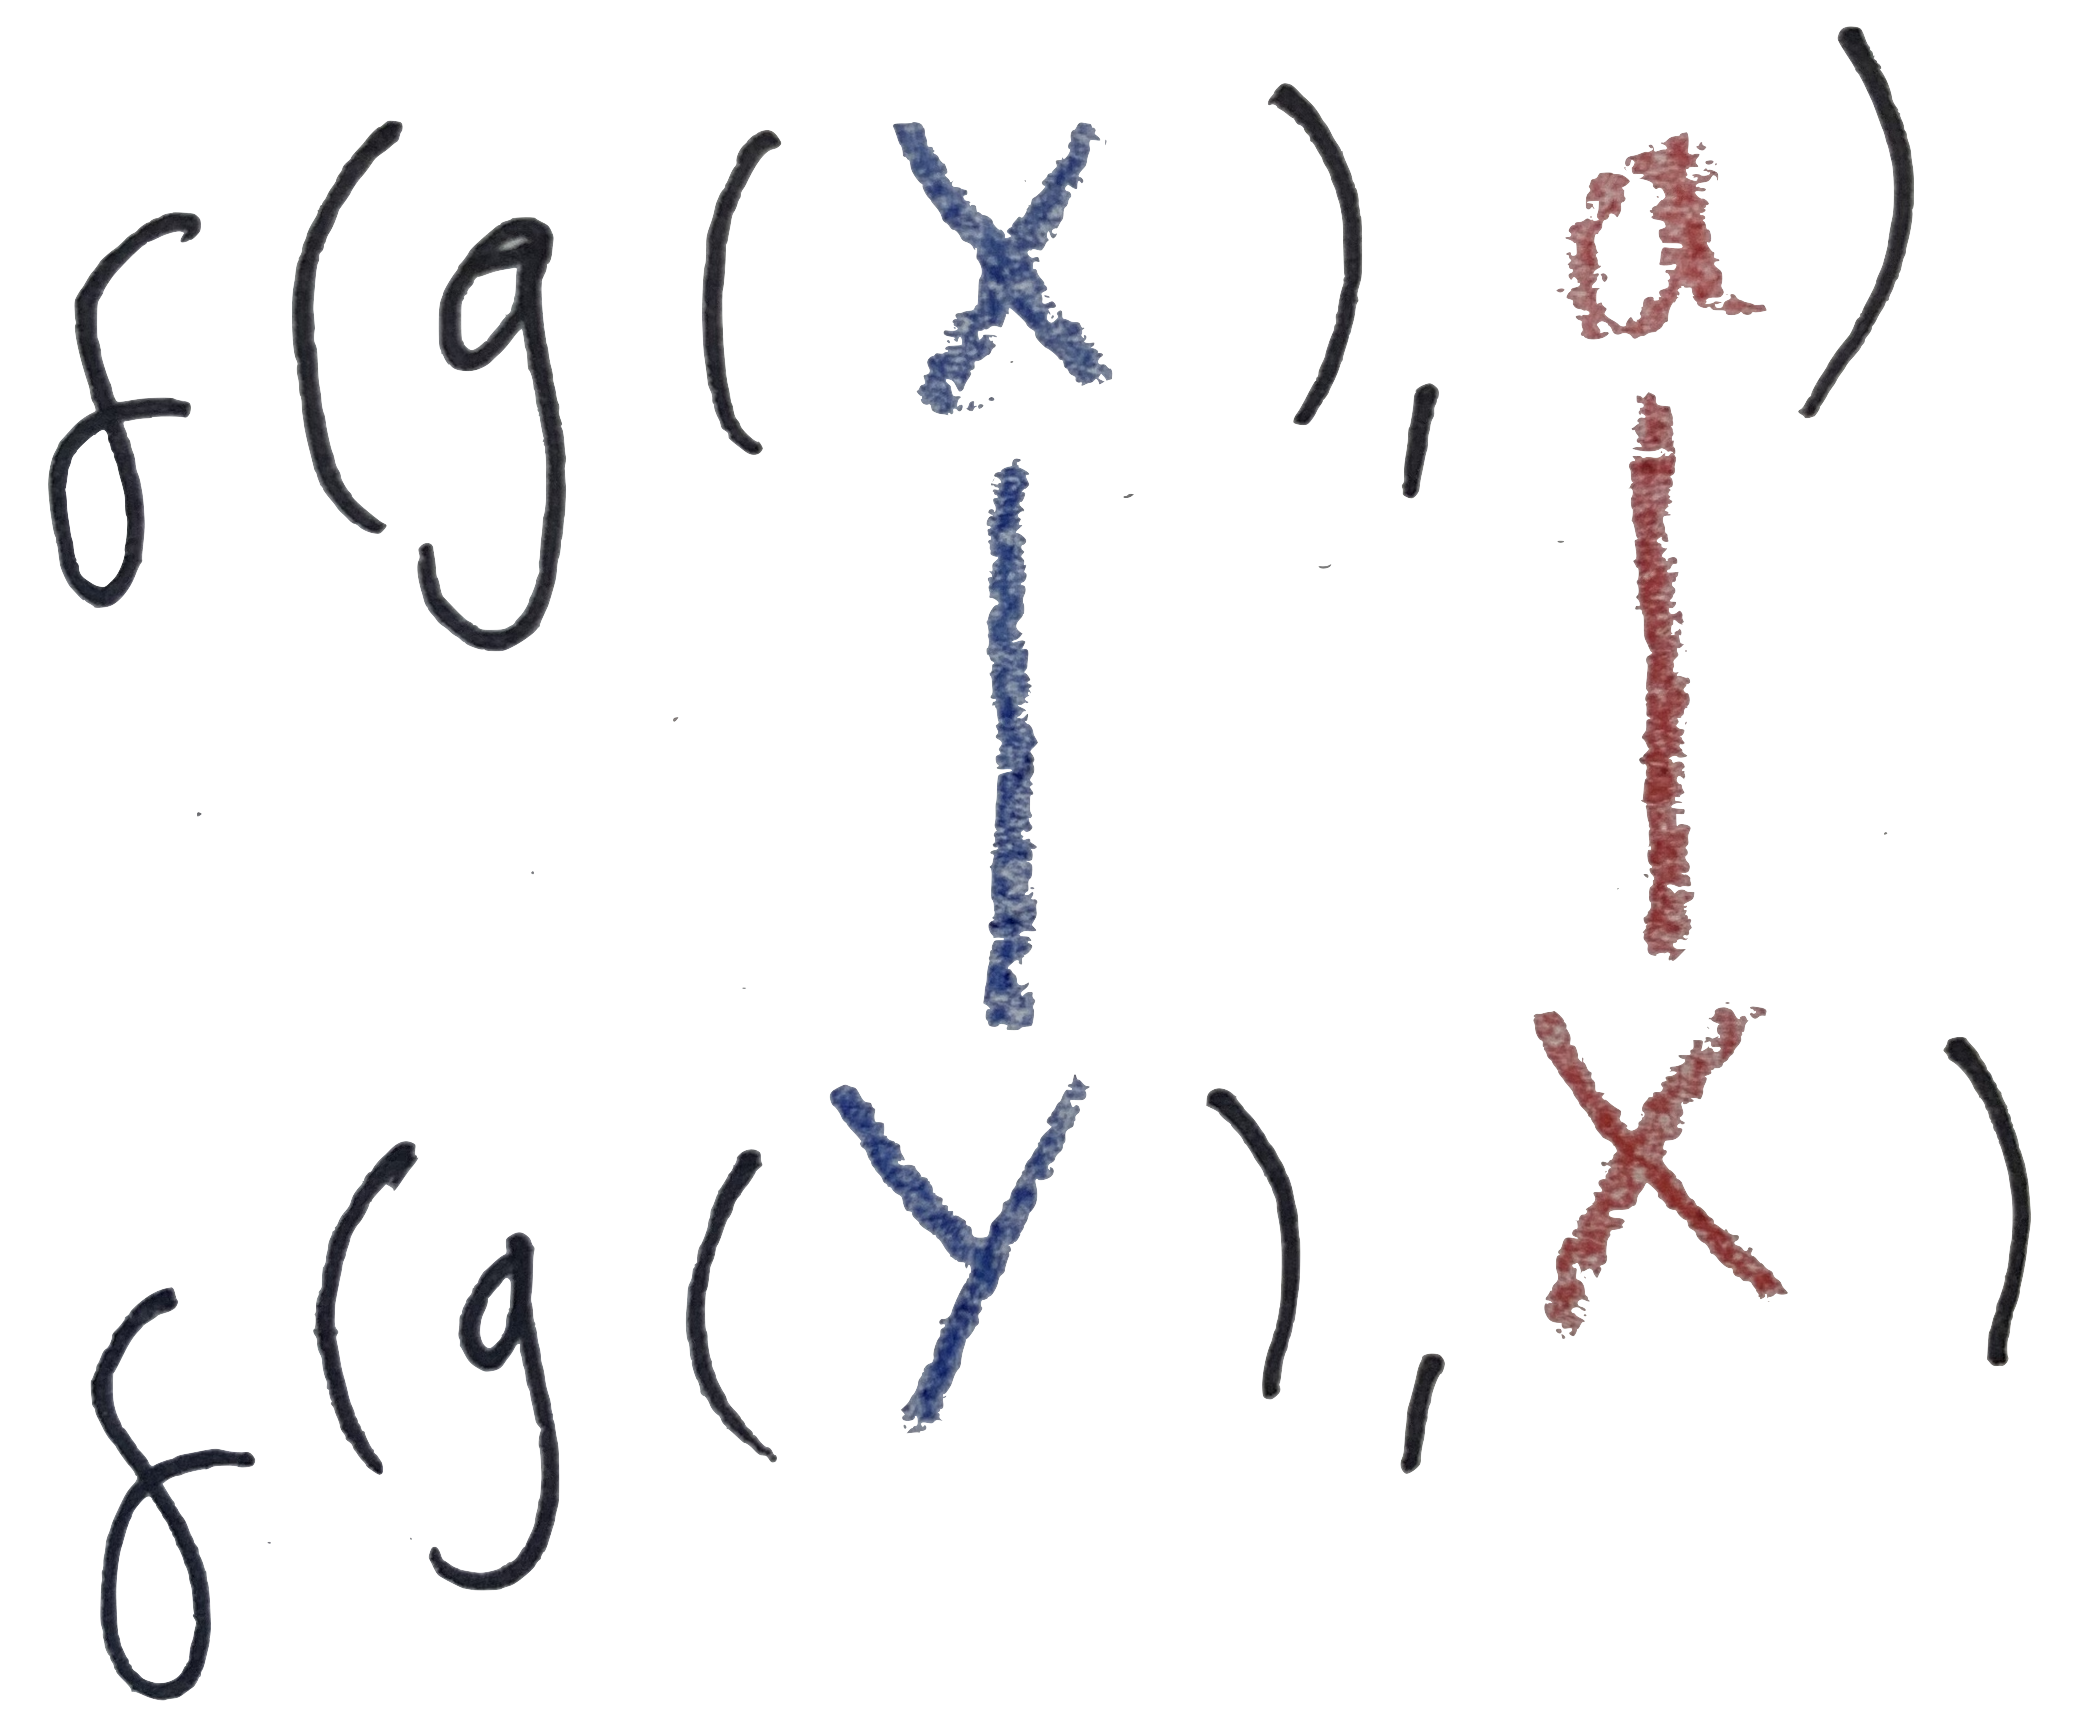 f(g(X), a)
f(g(Y), X)